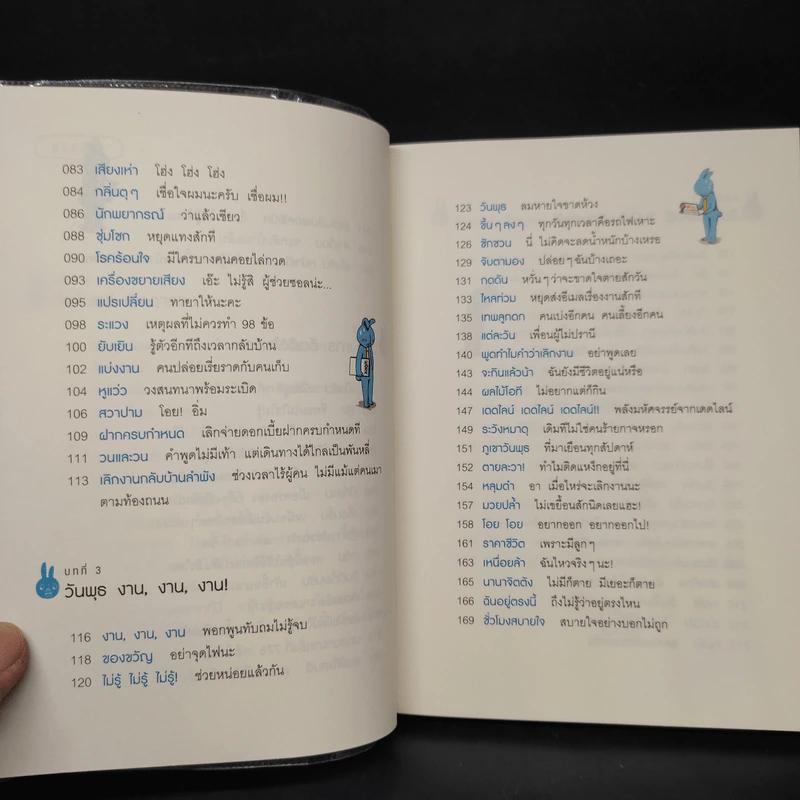 083 เสียงเห่า โฮ่ง โฮ่ง โฮ่ง
084 กลิ่นตุๆ เชื่อใจผมนะครับ เชื่อผม!!
086 นักพยากรณ์ ว่าแล้วเชียว
088 ซุ่มโชก หยุดแทงสักที
090 โรคร้อนใจ มีใครบางคนคอยไล่กวด
093 เครื่องขยายเสียง เอ๊ะ ไม่รู้สิ ผู้ช่วยซอลน่ะ...
095 แปรเปลี่ยน ทายาให้นะคะ
098 ระแวง เหตุผลที่ไม่ควรทำ 98 ข้อ
100 ยับเยิน รู้ตัวอีกทีถึงเวลากลับบ้าน
102 แบ่งงาน คนปล่อยเรี่ยราดกับคนเก็บ
104 หูแว่ว วงสนทนาพร้อมระเบิด
106 สวาปาม โอย! อิ่ม
109 ฝากครบกำหนด เลิกจ่ายดอกเบี้ยฝากครบกำหนดที
111 วนและวน คำพูดไม่มีเท้า แต่เดินทางได้ไกลเป็นพันหลี่
113 เลิกงานกลับบ้านลำพัง ช่วงเวลาไร้ผู้คน ไม่มีแม้แต่คนเมา
ตามท้องถนน
บทที่ 3
วันพุธ งาน, งาน, งาน!
116 งาน, งาน, งาน พอกพูนทับถมไม่รู้จบ
118 ของขวัญ อย่าจุดไฟนะ
120 ไม่รู้ ไม่รู้ ไม่รู้! ช่วยหน่อยแล้วกัน
123 วันพุธ ลมหายใจขาดห้วง
124 ขึ้นๆ ลงๆ ทุกวันทุกเวลาคือรถไฟเหาะ
126 ชักชวน นี่ ไม่คิดจะลดน้ำหนักบ้างเหรอ
129 จับตามอง ปล่อยๆ ฉันบ้างเถอะ
131 กดดัน หวั่นๆ ว่าจะขาดใจตายสักวัน
133 ไหลท่วม หยุดส่งอีเมลเรื่องงานสักที
135 เทพลูกดก คนเบ่งอีกคน คนเลี้ยงอีกคน
138 แต่ละวัน เพื่อนผู้ไม่ปรานี
140 พูดทำไมคำว่าเลิกงาน อย่าพูดเลย
143 จะกินแล้วน้า ฉันยังมีชีวิตอยู่แน่หรือ
144 ผลไม้โอที ไม่อยากแต่ก็กิน
147 เดดไลน์ เดดไลน์ เดดไลน์!! พลังมหัศจรรย์จากเดดไลน์
149 ระวังหมาดุ เดิมทีไม่ใช่คนร้ายกาจหรอก
151 ภูเขาวันพุธ ที่มาเยือนทุกสัปดาห์
152 ตายละวา! ทำไมติดแหง็กอยู่ที่นี่
154 หลุมดำ อา เมื่อไหร่จะเลิกงานนะ
157 มวยปล้ำ ไม่เขยื้อนสักนิดเลยแฮะ!
158 โอย โอย อยากออก อยากออกไป!
161 ราคาชีวิต เพราะมีลูกๆ
163 เหนื่อยล้า ฉันไหวจริงๆ นะ!
165 นานาจิตตัง ไม่มีก็ตาย มีเยอะก็ตาย
166 ฉันอยู่ตรงนี้ ถึงไม่รู้ว่าอยู่ตรงไหน
169 ชั่วโมงสบายใจ สบายใจอย่างบอกไม่ถูก